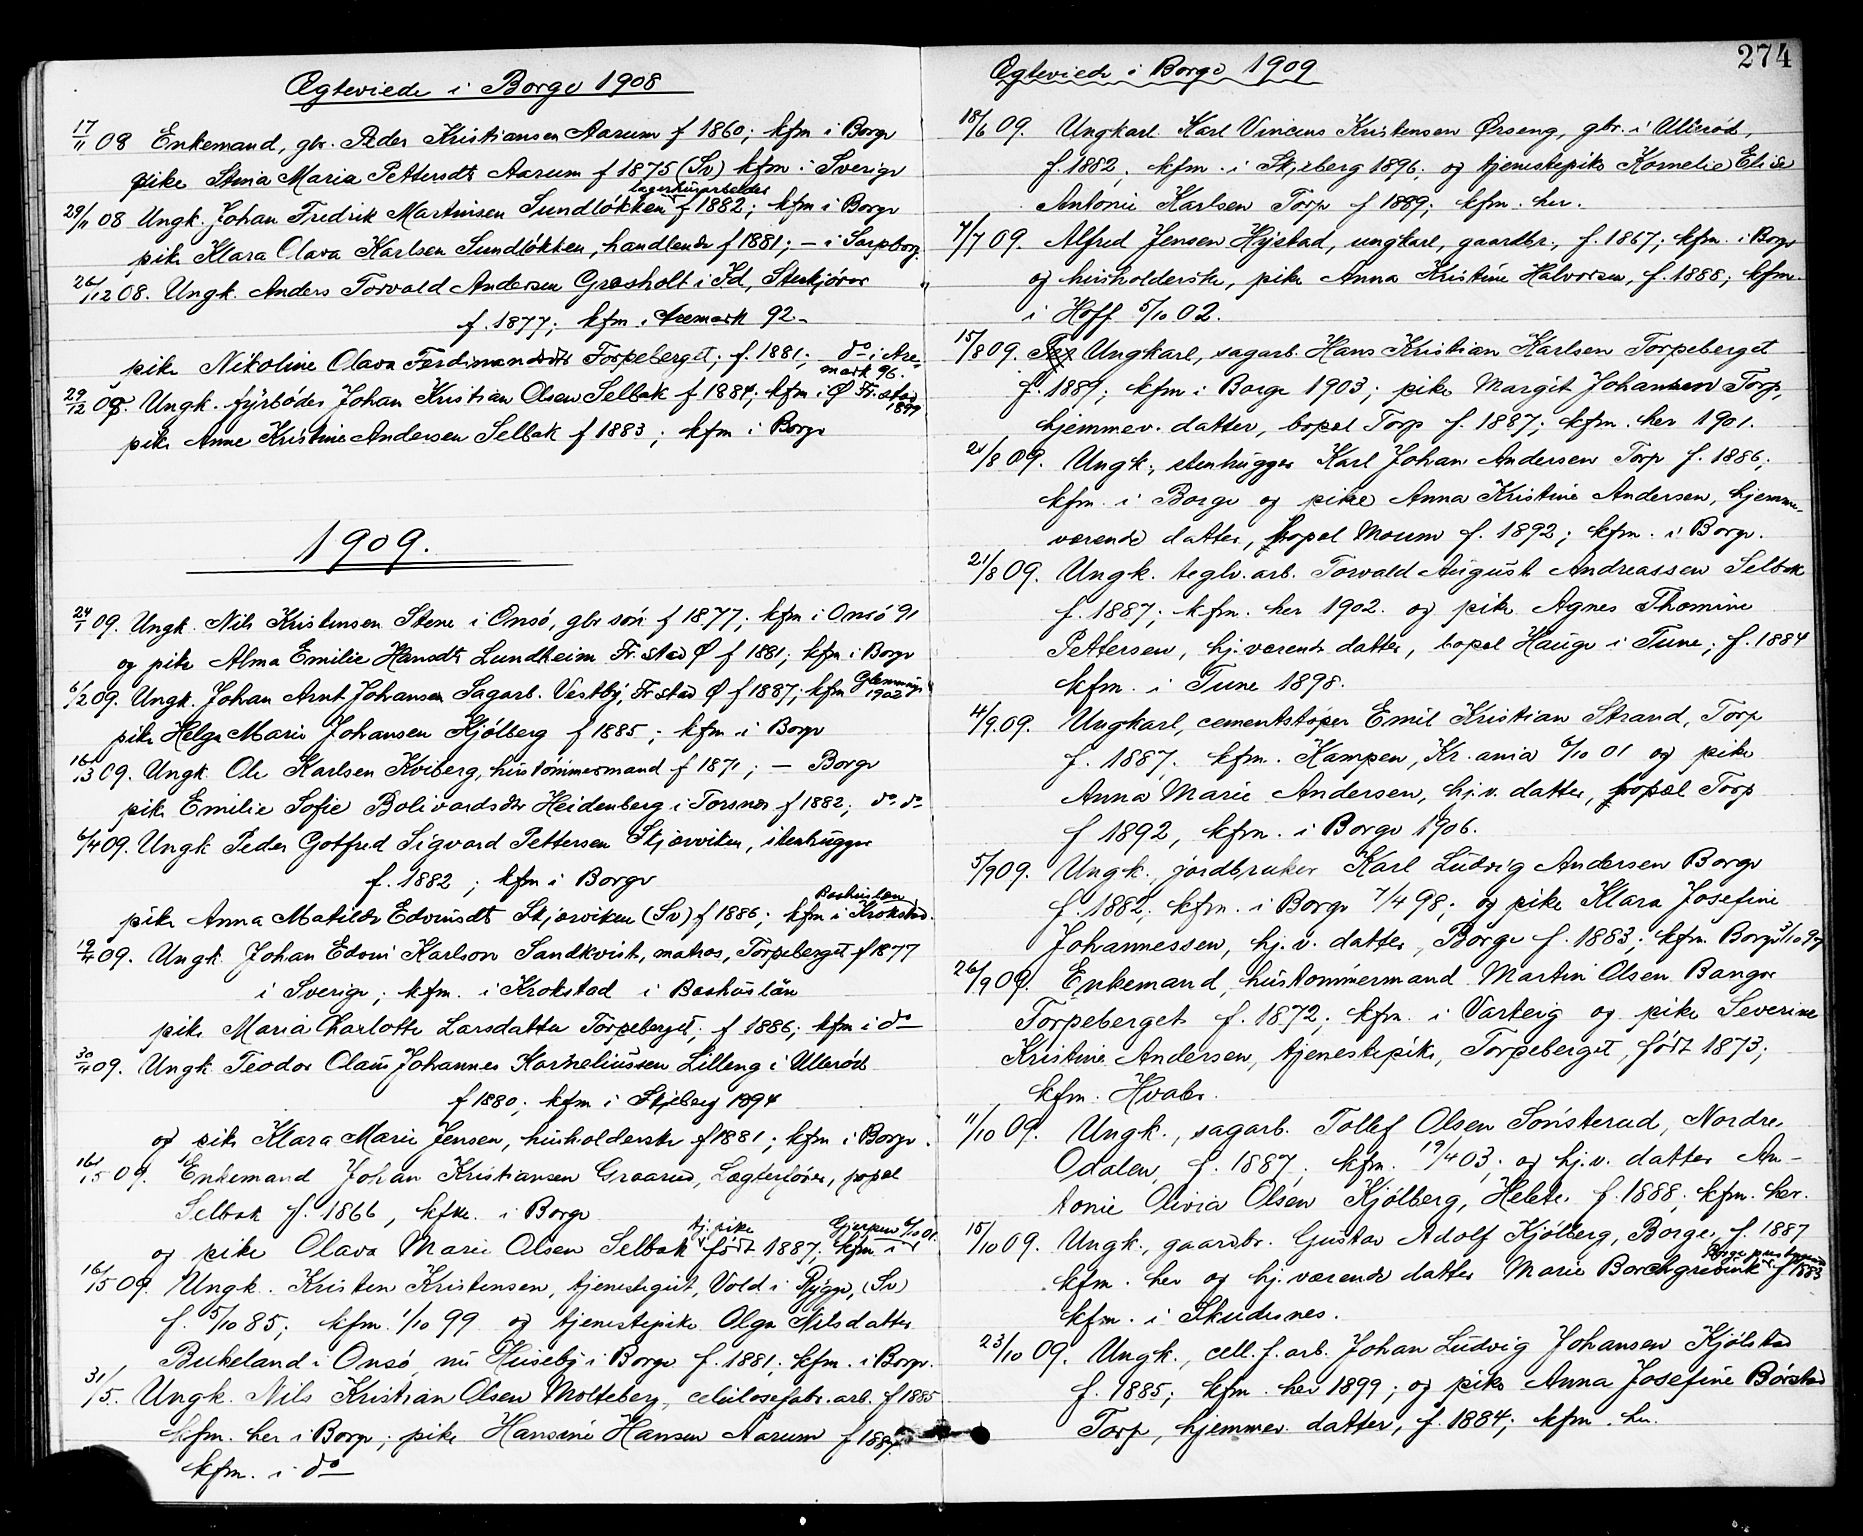 Ægteviede i Borge 1908
17/11 08 Enkemand, gbr. Peder Kristiansen Aarum f 1860; kfm i Borge
pike Stina Maria Pettersdtr Aarum f 1875 (Sv) kfm i Sverige
lagerhusarbeider
29/11 08 Ungk. Johan Fredrik Martinsen Sundløkken f 1882; kfm i Borge
pike Klara Olava Karlsen Sundløkken, handlende f 1881; – i Sarpsborg.
26/12 08. Ungk. Anders Torvald Andersen Græsholt i Id, Stenkjører
f. 1877; kfm i Aremark 92 –
pike Nikoline Olava Ferdinandsdtr Torpeberget; f. 1881; do i Are-
mark 96.
29/12 08. Ungk. fyrbøder Johan Kristian Olsen Selbak f 1884; kfm i Ø Fr.stad
1899
pike Anne Kristine Andersen Selbak f 1883; kfm i Borge
1909.
24/1 09. Ungk. Nils Kristensen Stene i Onsø, gbr søn f 1877; kfm i Onsø 91
og pike Alma Emilie Hansdtr Lundheim Fr.stad Ø f 1881; kfm i Borge
6/2 09. Ungk. Johan Arnt Johansen Sagarb. Vestby, Fr stad Ø f 1887; kfm Glemminge
1902
pike Helga Marie Johansen Kjølberg f 1885; kfm i Borge
16/3 09. Ungk. Ole Karlsen Kviberg, hustømmermand f 1871; – Borge
pike Emilie Sofie Bolivardsdtr Heidenberg i Torsnes f 1882; do do
6/4 09. Ungk Peder Gotfred Sigvard Pettersen Skjærviken, stenhugger
f. 1882; kfm i Borge
Boshuslæn
pike Anna Matilde Edvinsdtr Skjærviken (Sv) f 1886; kfm i Krokstad.
12/4 09. Ungk. Johan Edvin Karlson Sandkvist, matros, Torpeberget f 1877
i Sverige; kfm. i Krokstad i Boshuslän
pike Maria Charlotte Larsdatter Torpeberget; f 1886; kfm i do
30/4 09. Ungk. Teodor Olaus Johannes Karneliussen Lilleng i Ullerød
f 1880; kfm i Skjeberg 1894
og pike Klara Marie Jensen, husholderske f 1881; kfm i Borge.
16/5 09. Enkemand Johan Kristiansen Graarud, Lægterfører, bopæl
Selbak f. 1866, kfm. i Borge
tj. pike Gjerpen 6/10 01.
og pike Olava Marie Olsen Selbak født 1887; kfm i
16/5 09. Ungk. Kristen Kristensen, tjenestegut, Vold i Rygge, (Sv)
f. 5/10 85; kfm. 1/10 99 og tjenestepike Olga Nilsdatter
Bukeland i Onsø nu Huseby i Borge f. 1881; kfm. i Borge.
31/5. Ungk. Nils Kristian Olsen Molteberg, celulosefabr. arb. f 1885
kfm. her i Borge; pike Hansine Hansen Aarum f 1884.
kfm. i do
274
Ægteviede i Borge 1909
18/6 09. Ungkarl Karl Vincens Kristensen Ørseng, gbr. i Ullerød,
f. 1882; kfm. i Skjeberg 1896. og tjenestepike Kornelie Elise
Antonie Karlsen Torp f 1889; kfm. her.
4/7 09. Alfred Jensen Hystad, ungkarl, gaardbr., f. 1867; kfm. i Borge
og husholderske, pike Anna Kristine Halvorsen, f. 1888; kfm.
i Hoff 5/10 02.
15/8 09. Ungkarl, sagarb. Hans Kristian Karlsen Torpeberget
f. 1889; kfm i Borge 1903; pike Margit Johansen Torp,
hjemmev. datter, bopæl Torp f. 1887; kfm. her 1901.
21/8 09. Ungk., stenhugger Karl Johan Andersen Torp f. 1886;
kfm. i Borge og pike Anna Kristine Andersen, hjemme-
værende datter, bopæl Moum f. 1892; kfm. i Borge.
21/8 09. Ungk. teglv. arb. Torvald August Andreassen Selbak
f. 1887; kfm. her 1902. og pike Agnes Thomine
Pettersen, hj. værende datter, bopæl Hauge i Tune; f. 1884
kfm. i Tune 1898.
4/9 09. Ungkarl, cementstøper Emil Kristian Strand, Torp
f. 1887. kfm. Kampen, Kr.ania 6/10 01 og pike
Anna Marie Andersen, hj.v. datter, bopæl Torp
f 1892, kfm. i Borge 1906.
5/9 09. Ungk. jordbruker Karl Ludvig Andersen Borge
f. 1882; kfm. i Borge 7/4 98; og pike Klara Josefine
Johannessen, hj. v. datter, Borge f. 1883; kfm. Borge 3/10 97
26/9 09. Enkemand, hustømmermand Martin Olsen Bangsr
Torpeberget f. 1872; kfm. i Varteig og pike Severine
Kristine Andersen, tjenestepike, Torpeberget, født 1873;
kfm. Hvaler.
11/10 09. Ungk., sagarb. Tollef Olsen Sønsterud, Nordre
Odalen, f. 1887; kfm. 19/4 03; og hj.v. datter An-
tonie Olivia Olsen Kjølberg, Helete. f. 1888; kfm. her.
15/10 09. Ungk., gaardbr. Gustav Adolf Kjølberg, Borge, f. 1887
kfm. her og hj. værende datter Marie Borchgrevink f 1883
kfm. i Skudesnes.
23/10 09. Ungk., cell. f. arb. Johan Ludvig Johansen Kjølstad
f. 1885; kfm. her 1899; og pike Anna Josefine Børstad
Torp, hjemmev. datter, f. 1884; kfm. her.